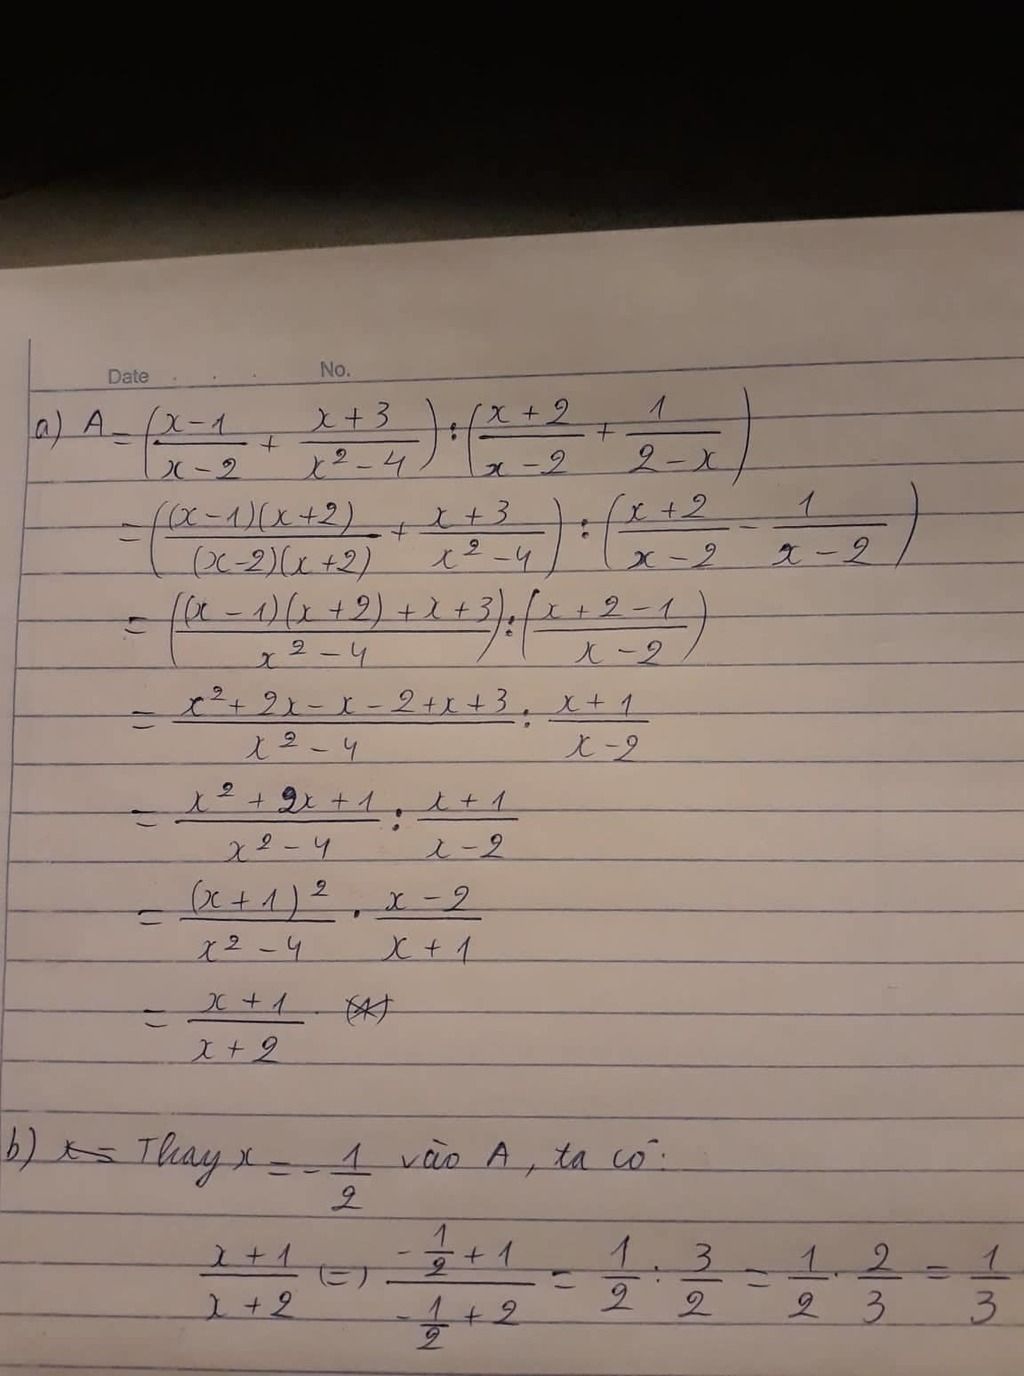 Date . . . No.
a) A = ((x-1)/(x-2) + (x+3)/(x²-4)) : ((x+2)/(x-2) + 1/(2-x))
= ((x-1)(x+2)/(x-2)(x+2) + (x+3)/(x²-4)) : ((x+2)/(x-2) - 1/(x-2))
= (((x-1)(x+2)+x+3)/(x²-4)) : ((x+2-1)/(x-2))
= (x²+2x-x-2+x+3)/(x²-4) : (x+1)/(x-2)
= (x²+2x+1)/(x²-4) : (x+1)/(x-2)
= (x+1)²/(x²-4) . (x-2)/(x+1)
= (x+1)/(x+2)
b) Thay x = -1/2 vào A, ta có:
(x+1)/(x+2) (=) (-1/2+1)/(-1/2+2) = 1/2 : 3/2 = 1/2 . 2/3 = 1/3